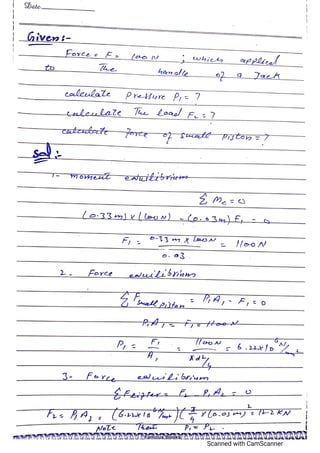 Date
Given:-
Force = F = 100 N ; which applied
to The handle of a Jack
calculate Pressure P₁ = ?
calculate The Load F₂ = ?
calculate Force of small Piston = ?
Sol:-
1- moment equilibrium
Σ M₀ = 0
(0.33 m) x (100 N) - (0.03m) F₁ = 0
F₁ = 0.33 m x 100N / 0.03 = 1100 N
2- Force equilibrium
Σ F small piston = P₁A₁ - F₁ = 0
P₁A₁ = F₁ = 1100 N
P₁ = F₁ / A₁ = 1100 N / = 6.22x10⁶ N/m²
3- Force equilibrium
Σ F = F₂ - P₂ A₂ = 0
F₂ = P₂ A₂ = (6.22x10⁶ N/m²) ( /4 x (0.05m)² = 12.2 KN
Note That P₁ = P₂
Scanned with CamScanner